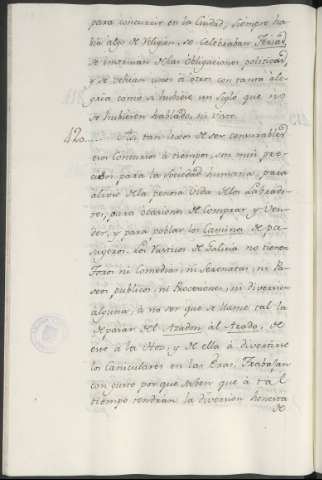 para concurrir en la Ciudad, siempre ha
bia algo de Religion, se Celebraban Ferias,
se instruian de las obligaciones politicas,
y se veían unos à otros con tanta ale-
gria como si hubiese un siglo que no
se hubiesen hablado, ni visto.
420 Tan lexos de ser censurables
esos Concursos à tiempos, son mui pre-
cisos para la Sociedad humana, para
alivio de la penosa vida de los Labrado-
res, para ocasiones de Comprar, y Ven-
der, y para poblar los Caminos de pa-
sageros. Los Rusticos de Galicia no tienen
Toros ni Comedias, ni Serenatas, ni Pa-
seos publicos, ni Procesiones, ni diversion
alguna, à no ser que se llame tal la
de pasar del Azadon al Arado, de
este à la Hoz, y de ella à divertirse
los Caniculares en las Eras. Trabajan
con gusto porque saben que à tal
tiempo tendràn la diversion honesta
de